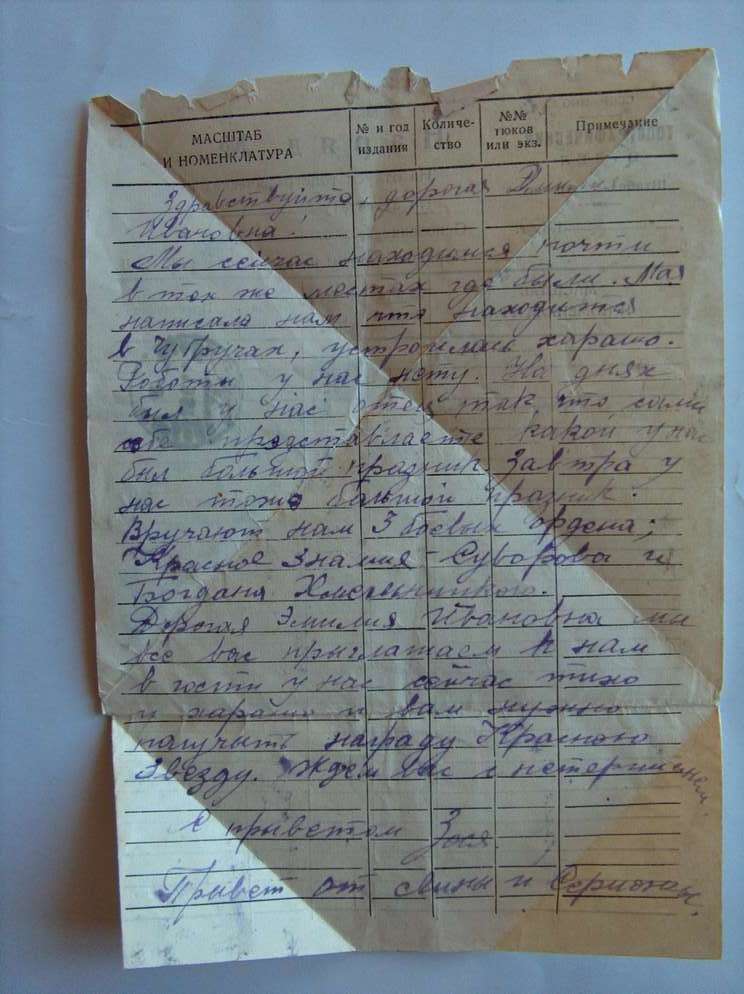 МАСШТАБ И НОМЕНКЛАТУРА № и год издания Количе-ство №№ тюков или экз. Примечание
Здравствуйте, дорогая
Ивановна!
Мы сейчас находимся почти
в тех же местах где были. Мая
написала нам что находится
в Чугручах, устроились харашо.
Роботы у нас нету. На днях
был у нас отец так что сами
себе представляете какой у нас
был большой празник завтра у
нас тоже большой празник.
Вручают нам 3 боевых ордена;
Красное Знамия - Суворова и
Богдана Хмельницкого.
Дорогая Эмилия Ивановна мы
все вас прыглашаем к нам
в гости у нас сейчас тихо
и харашо и вам нужно
палучыть награду Красною
Звезду. Ждем вас с нетерпением.
С прыветом Зося
Привет от и